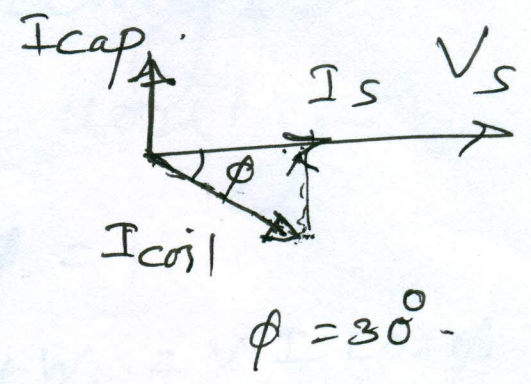 Icap.
Is
Vs
ϕ
Icoil
ϕ = 30°.